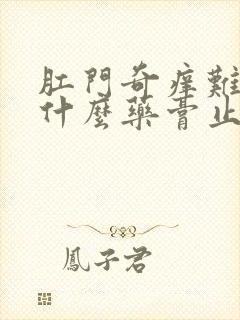 肛門奇痒難
什麼藥膏止
鳳子君